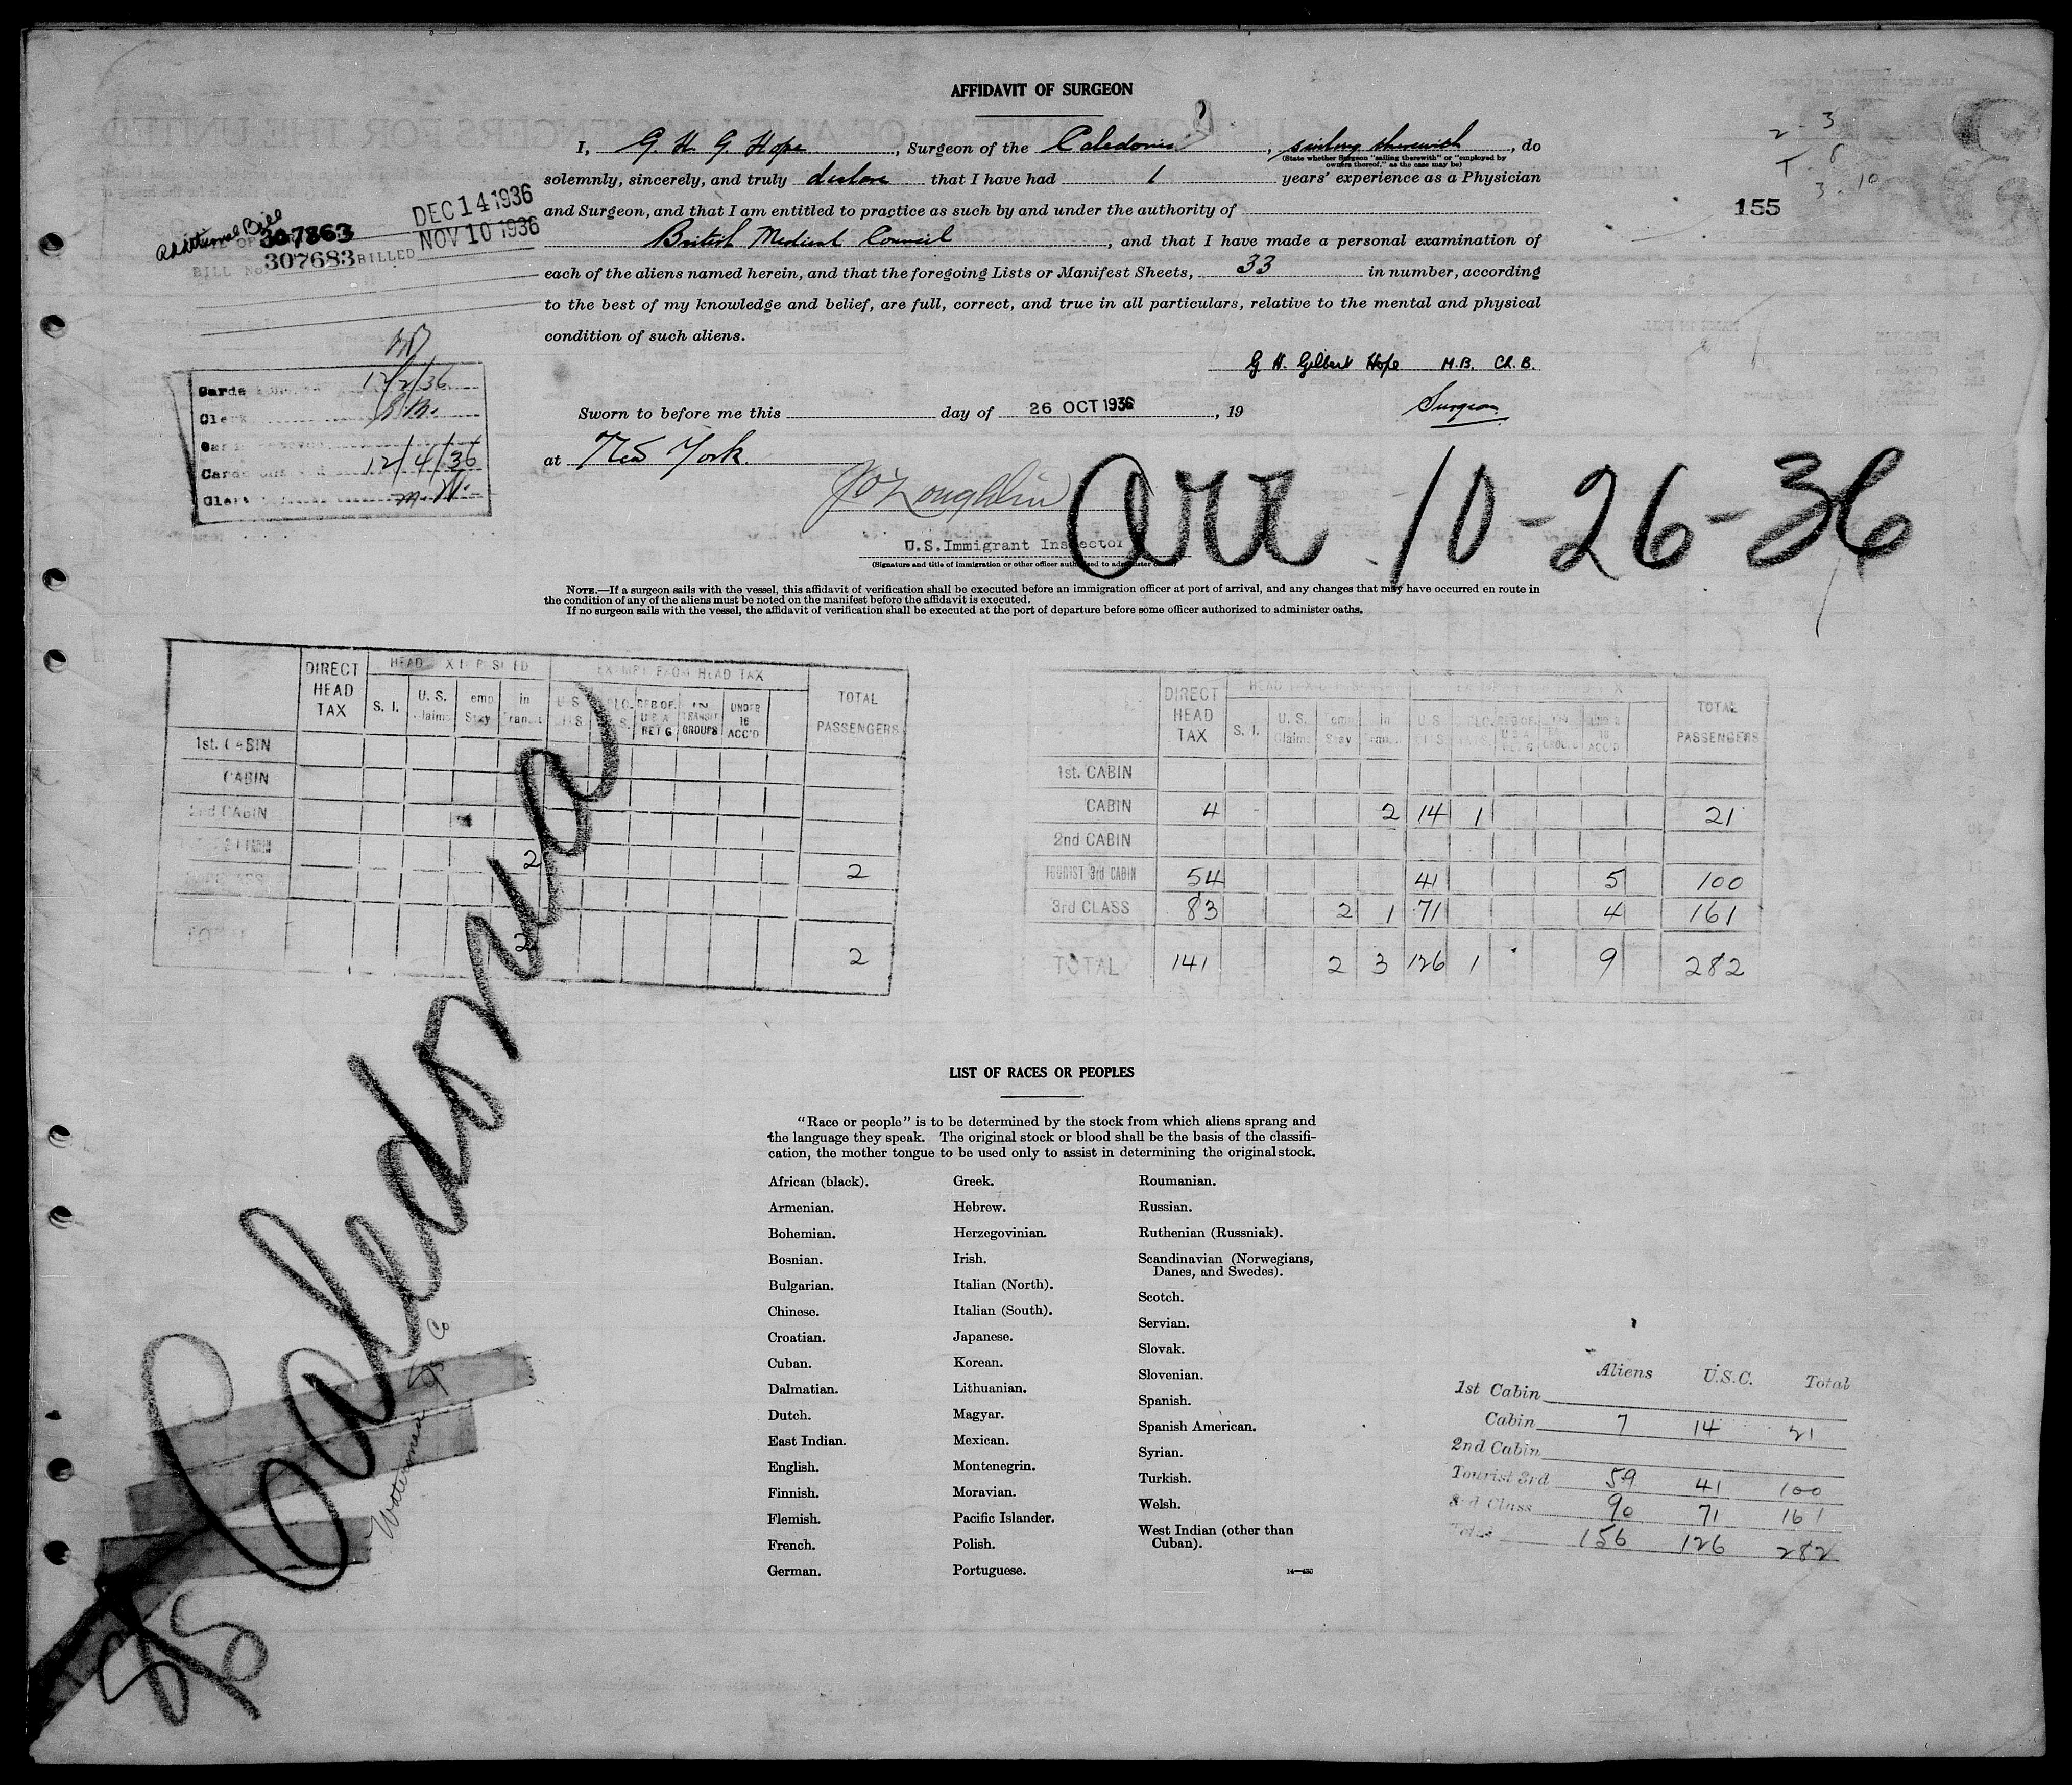 AFFIDAVIT OF SURGEON
I, G. H. G. Hope, Surgeon of the Caledonia, sailing therewith, do
(State whether Surgeon "sailing therewith" or "employed by
owners thereof," as the case may be)
solemnly, sincerely, and truly declare that I have had 1 years' experience as a Physician
and Surgeon, and that I am entitled to practice as such by and under the authority of
British Medical Council, and that I have made a personal examination of
each of the aliens named herein, and that the foregoing Lists or Manifest Sheets, 33 in number, according
to the best of my knowledge and belief, are full, correct, and true in all particulars, relative to the mental and physical
condition of such aliens.
G H. Gilbert Hope M.B. Ch.B.
Surgeon
Sworn to before me this day of 26 OCT 1936, 19
at New York.
J O'Loughlin
U.S. Immigrant Inspector
(Signature and title of immigration or other officer authorized to administer oaths)
Arr 10-26-36
2 - 3
T - 8
3 - 10
155
Additional Bill
307863 DEC 14 1936
BILL No 307683 BILLED NOV 10 1936
Cards 12/2/36
Clerk
Cards out 12/4/36
Clerk M.W.
NOTE.—If a surgeon sails with the vessel, this affidavit of verification shall be executed before an immigration officer at port of arrival, and any changes that may have occurred en route in
the condition of any of the aliens must be noted on the manifest before the affidavit is executed.
If no surgeon sails with the vessel, the affidavit of verification shall be executed at the port of departure before some officer authorized to administer oaths.
DIRECT HEAD TAX S. I. U. S. Claims Temp Stay in Transit EXEMPT FROM HEAD TAX UNDER 16 ACC'D TOTAL PASSENGERS
1st. CABIN
CABIN
2nd CABIN
2 2
TOTAL 2 2
DIRECT HEAD TAX S. I. U. S. Claims Temp Stay in Transit TOTAL PASSENGERS
1st. CABIN
CABIN 4 - 2 14 1 21
2nd CABIN
TOURIST 3rd CABIN 54 41 5 100
3rd CLASS 83 2 1 71 4 161
TOTAL 141 2 3 126 1 9 282
SS Caledonia
Waterman SS Co
LIST OF RACES OR PEOPLES
"Race or people" is to be determined by the stock from which aliens sprang and
the language they speak. The original stock or blood shall be the basis of the classifi-
cation, the mother tongue to be used only to assist in determining the original stock.
African (black).
Armenian.
Bohemian.
Bosnian.
Bulgarian.
Chinese.
Croatian.
Cuban.
Dalmatian.
Dutch.
East Indian.
English.
Finnish.
Flemish.
French.
German.
Greek.
Hebrew.
Herzegovinian.
Irish.
Italian (North).
Italian (South).
Japanese.
Korean.
Lithuanian.
Magyar.
Mexican.
Montenegrin.
Moravian.
Pacific Islander.
Polish.
Portuguese.
Roumanian.
Russian.
Ruthenian (Russniak).
Scandinavian (Norwegians,
Danes, and Swedes).
Scotch.
Servian.
Slovak.
Slovenian.
Spanish.
Spanish American.
Syrian.
Turkish.
Welsh.
West Indian (other than
Cuban).
14—430
Aliens U.S.C. Total
1st Cabin
Cabin 7 14 21
2nd Cabin
Tourist 3rd 59 41 100
3rd Class 90 71 161
Total 156 126 282